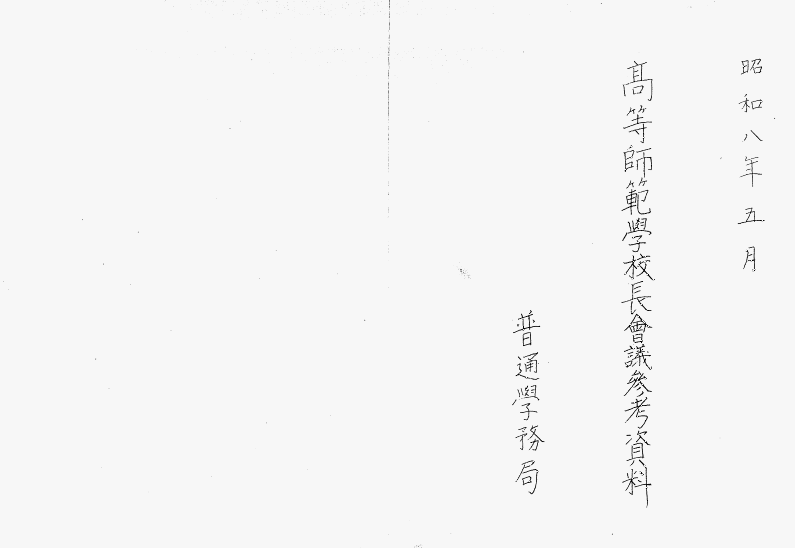 昭和八年五月
高等師範學校長會議參考資料
普通學務局